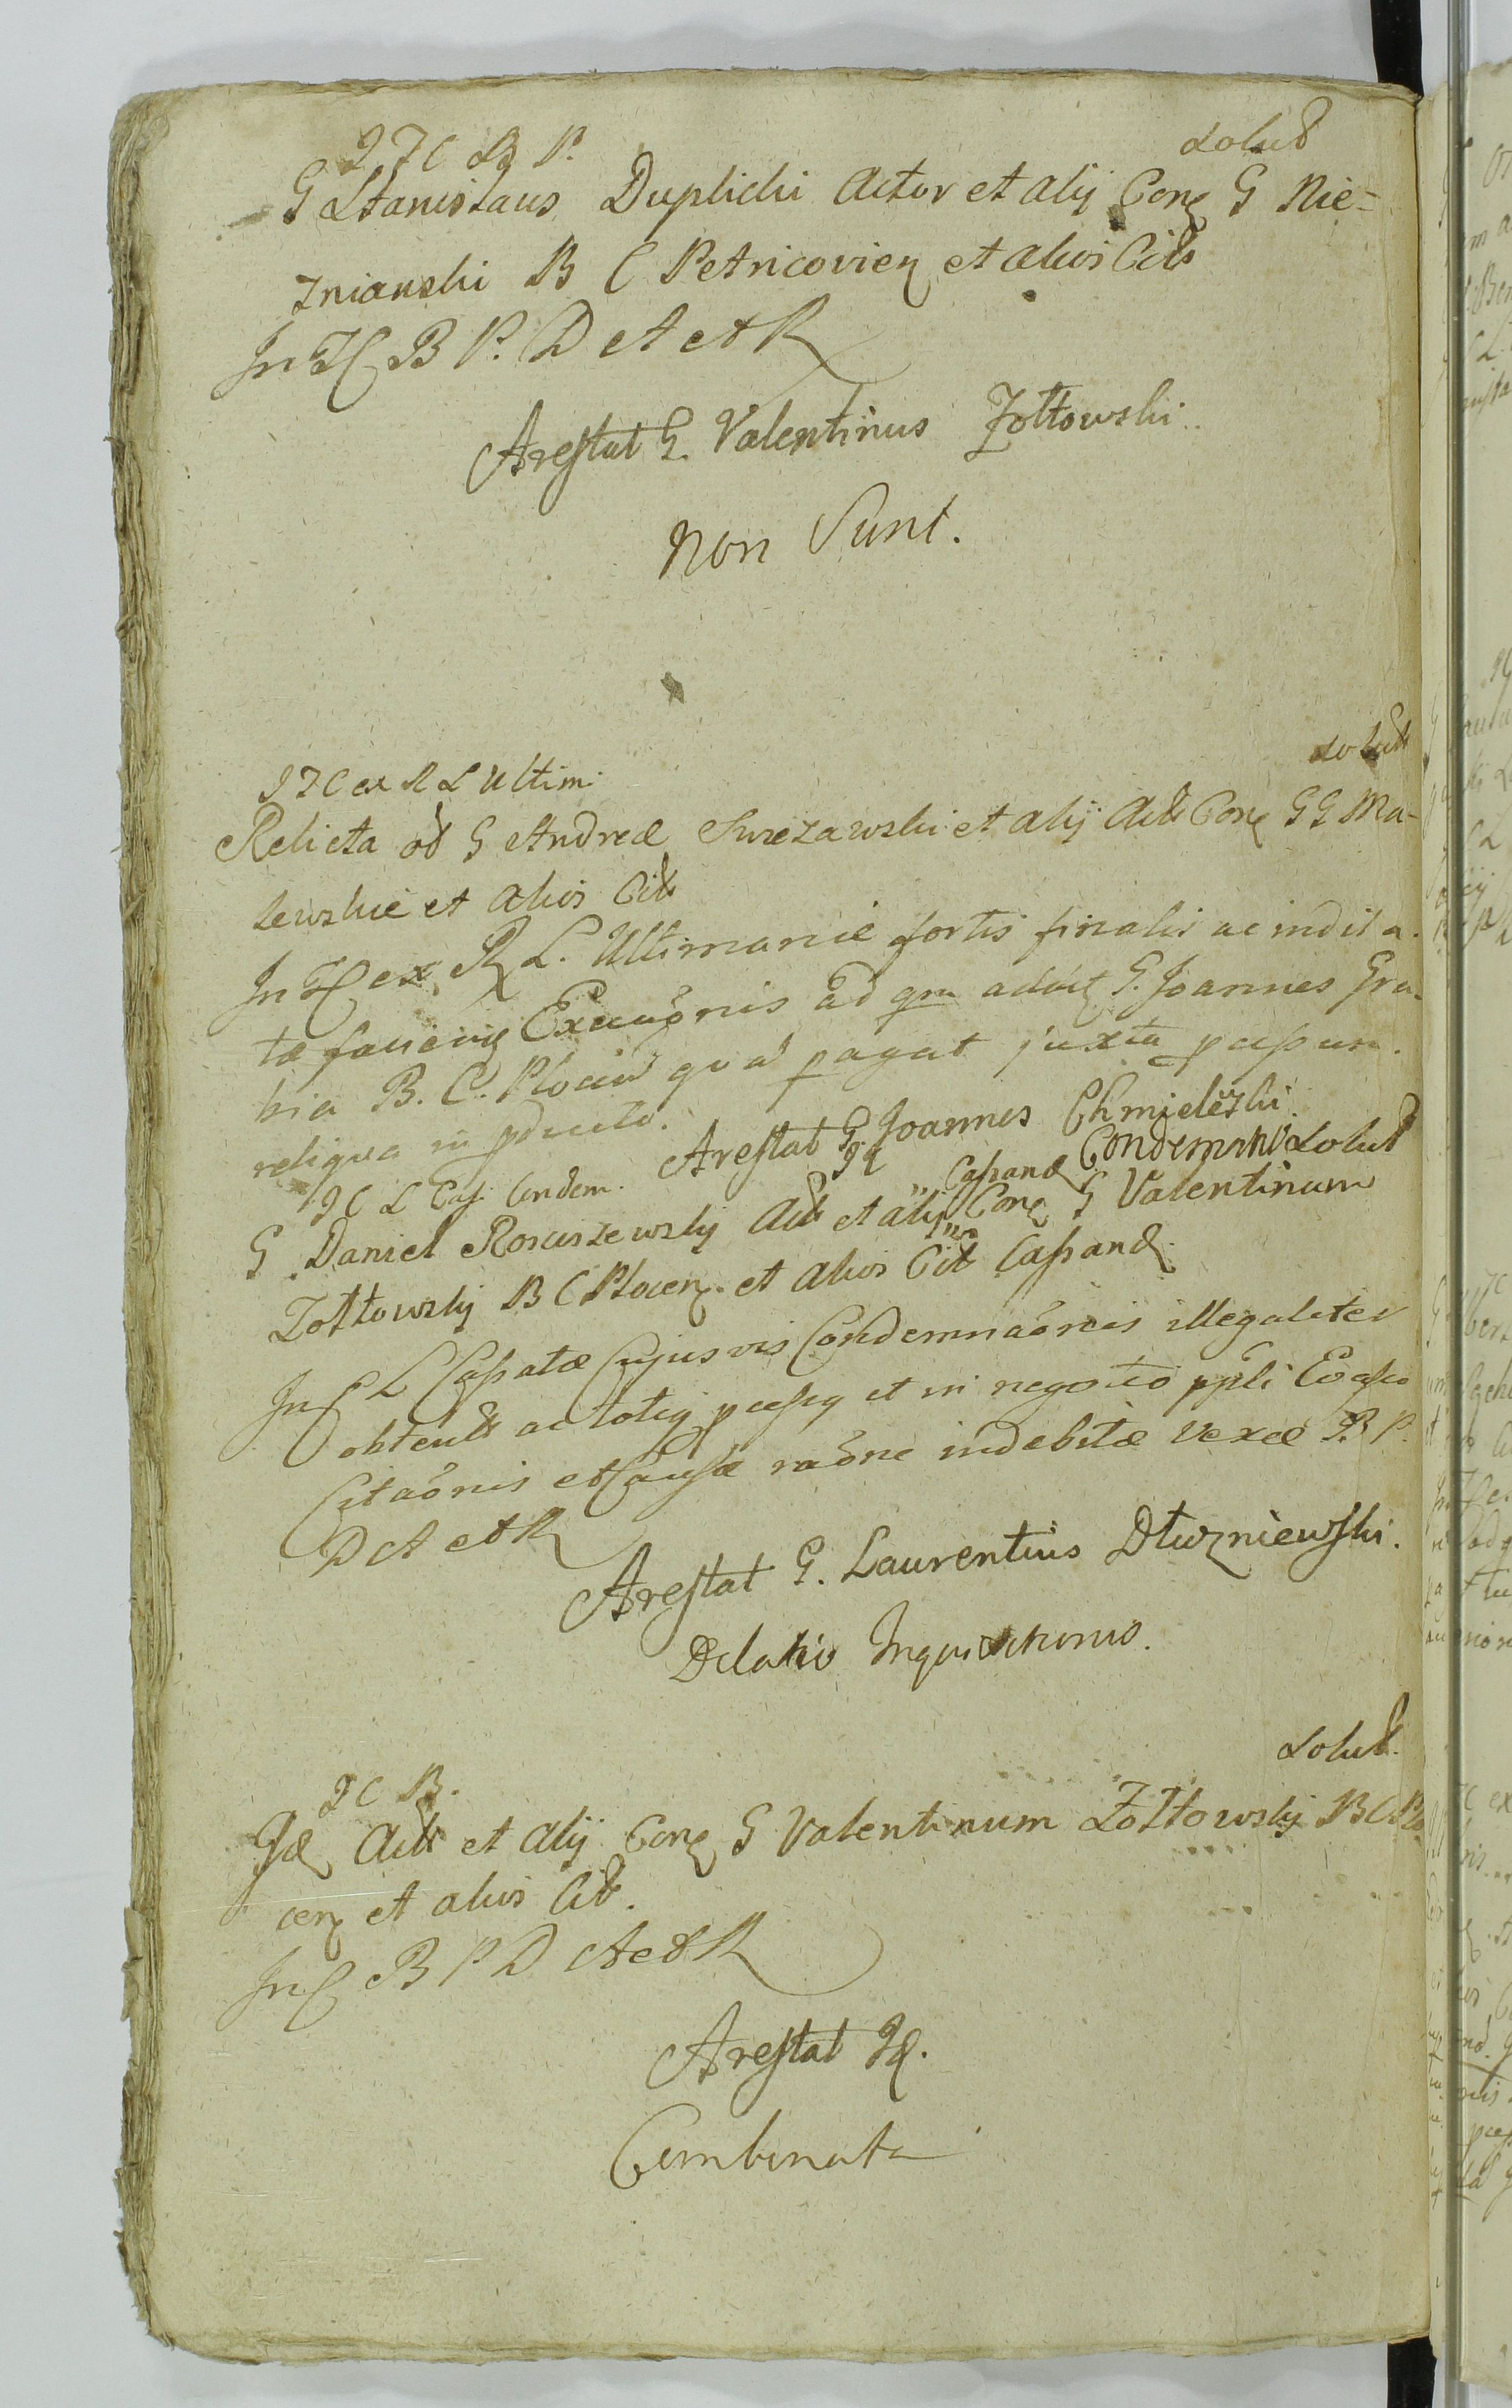 J T C B P. Solut
G Stanislaus Duplicki Actor et alij Con G Nie-
znianski B C Petricovien et alios Citt
In TC B P. D A et R
Arestat G. Valentinus Zołtowski.
non Sunt.
J T C ex R L Ultim. Solutt
Relicta od G Andreæ Swiezawski et alij Act Con G G Ma-
lewskie et alios Cit
In TC ex R L. Ultimariæ fortis finalis ac indila-
tæ Exãonis ad G. Joannes Gra-
bia B. C. Plocen pagat juxta
reliqua in
Arestat G. Joannes Chmielewski.
J C L Cass Condem. Id Cassand Condemnat Solut
G. Daniel Rosciszewsky Act et alij Con G Valentinum
Zołtowsky B C Plocen. et alios Cit Cassand.
In C L Cassatæ Cujusvis Condemnaõnis illegaliter
obtent ac totig et in negotio ppli Evasio
Citaõnis et Causæ raõne indebitæ vexæ B P.
D A et R
Arestat G. Laurentius Dłuzniewski.
Delatio Inquisitionis.
J C B. Solut.
Id Act et alij Con G Valentinum Zołtowsky B C Plo-
cen et alios Cit.
In C B P D A et R
Arestat Id.
Combinata